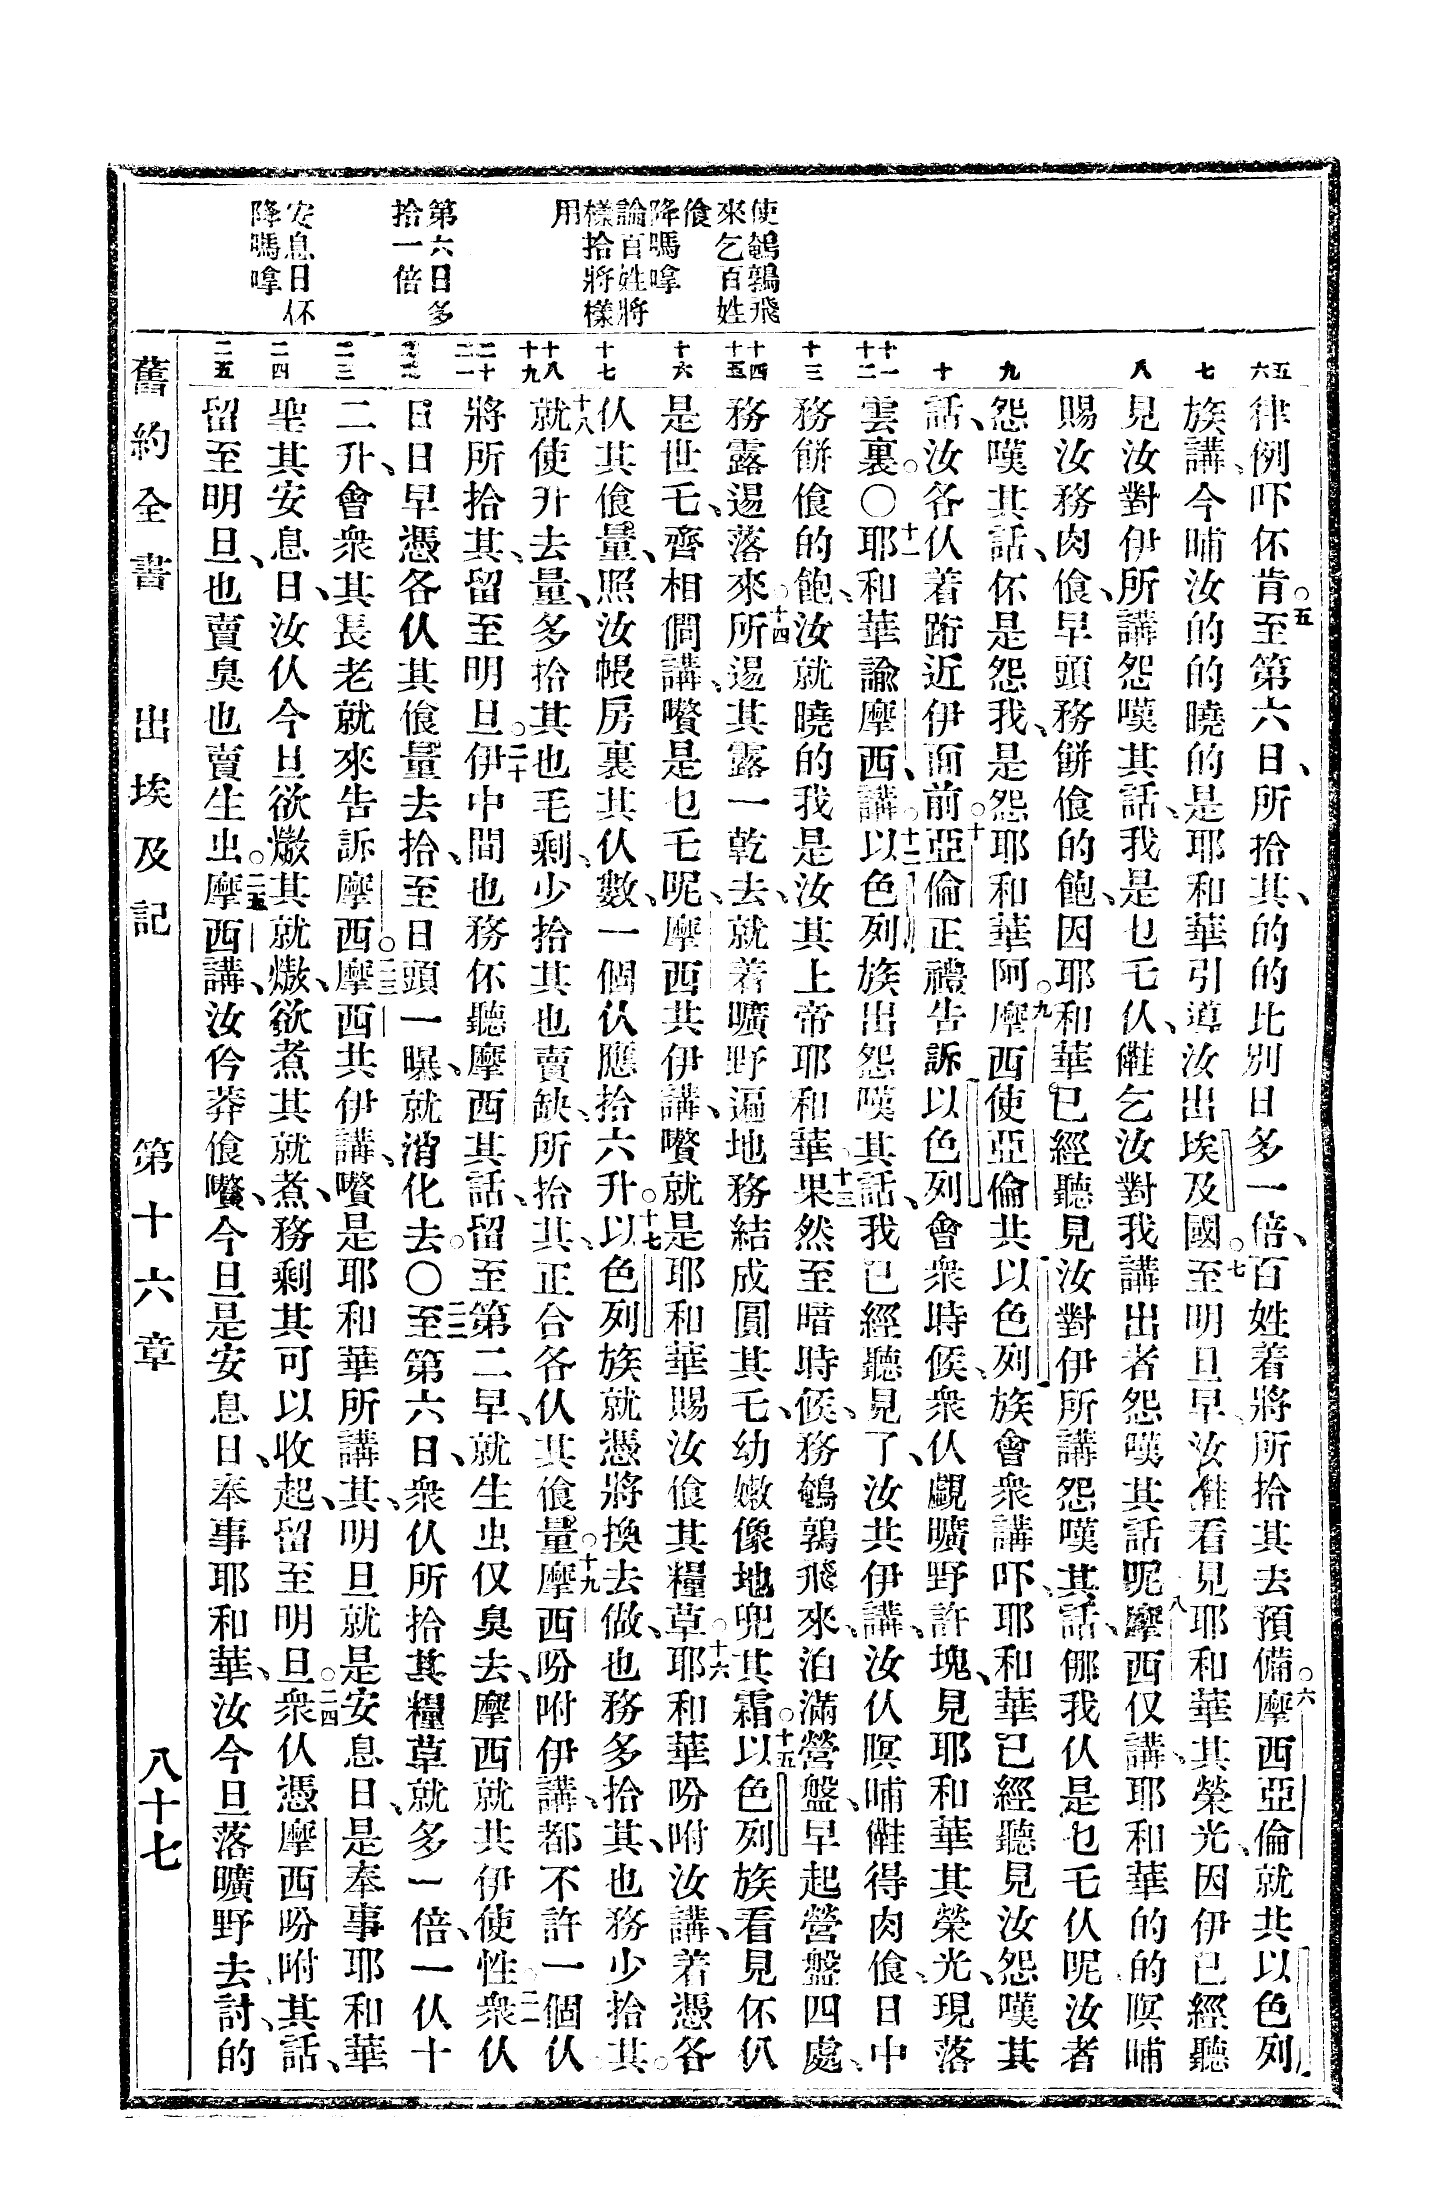 使鵪鶉飛
來乞百姓
飧
降嗎拿
論百姓將
樣拾將樣
用
第六日多
拾一倍
安息日伓
降嗎拿
五
六
七
八
九
十
十一
十二
十三
十四
十五
十六
十七
十八
十九
二十
二一
二二
二三
二四
二五
律例吓伓肯。五至第六日、所拾其、的的比別日多一倍、百姓着將所拾其去預備。六摩西亞倫就共以色列
族講、今晡汝的的曉的是耶和華引導汝出埃及國。七至明旦早、汝㑚看見耶和華其榮光、因伊已經聽
見汝對伊所講怨嘆其話、我是乜乇仈、㑚乞汝對我講出者怨嘆其話呢、八摩西仅講、耶和華的的暝晡
賜汝務肉飧、早頭務餅飧的飽、因耶和華已經聽見汝對伊所講怨嘆其話、㑚我仈是乜乇仈呢、汝者
怨嘆其話、伓是怨我、是怨耶和華阿。九摩西使亞倫共以色列族會衆講吓、耶和華已經聽見汝怨嘆其
話、汝各仈着跨近伊面前。十亞倫正禮告訴以色列會衆時候、衆仈覷曠野許塊、見耶和華其榮光、現落
雲裏。〇十一耶和華諭摩西、講。十二以色列族出怨嘆其話、我已經聽見了、汝共伊講、汝仈暝晡㑚得肉飧、日中
務餅飧的飽、汝就曉的我是汝其上帝耶和華。十三果然至暗時候、務鵪鶉飛來、泊滿營盤、早起營盤四處、
務露逿落來。十四所逿其露一乾去、就着曠野遍地務結成圓其乇、幼嫩像地兜其霜。十五以色列族看見伓仈
是世乇、齊相㒓講、嚽是乜乇呢、摩西共伊講、嚽就是耶和華賜汝飧其糧草。十六耶和華吩咐汝講、着憑各
仈其飧量、照汝帳房裏其仈數、一個仈應拾六升。十七以色列族就憑將換去做、也務多拾其、也務少拾其。
十八就使升去量、多拾其也毛剩、少拾其也賣缺、所拾其、正合各仈其飧量。十九摩西吩咐伊講、都不許一個仈
將所拾其、留至明旦。二十伊中間也務伓聽摩西其話、留至第二早、就生虫仅臭去、摩西就共伊使性。二一衆仈
日日早憑各仈其飧量去拾、至日頭一曝、就消化去。〇二二至第六日、衆仈所拾其糧草、就多一倍、一仈十
二升、會衆其長老就來告訴摩西。二三摩西共伊講、嚽是耶和華所講其、明旦就是安息日、是奉事耶和華
聖其安息日、汝仈今旦欲燉其就燉、欲煮其就煮、務剩其可以收起、留至明旦。二四衆仈憑摩西吩咐其話、
留至明旦、也賣臭也賣生虫。二五摩西講、汝仱莽飧嚽、今旦是安息日、奉事耶和華、汝今旦落曠野去討、的
舊約全書　出埃及記　第十六章　八十七